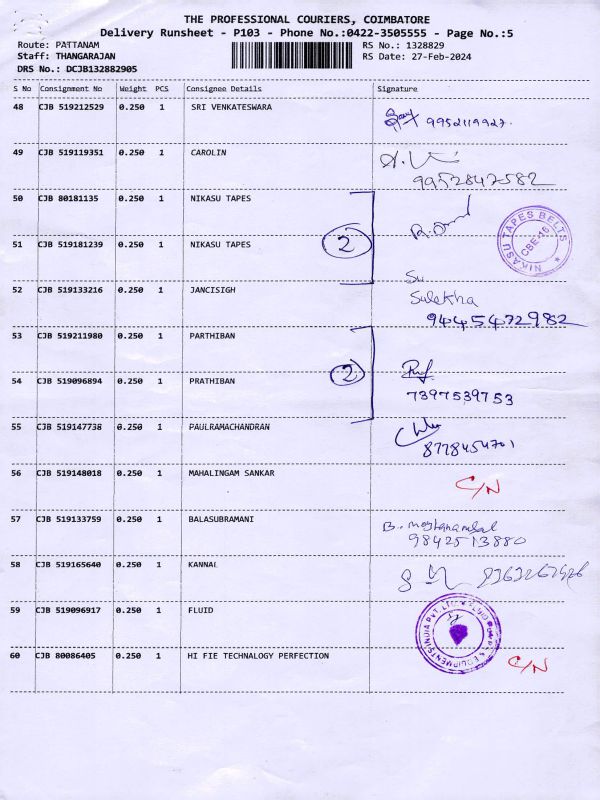 THE PROFESSIONAL COURIERS, COIMBATORE
Delivery Runsheet - P103 - Phone No.:0422-3505555 - Page No.:5
Route: PATTANAM RS No.: 1328829
Staff: THANGARAJAN RS Date: 27-Feb-2024
DRS No.: DCJB132882905
S No Consignment No Weight PCS Consignee Details Signature
48 CJB 519212529 0.250 1 SRI VENKATESWARA 9952119927.
49 CJB 519119351 0.250 1 CAROLIN
9952847582
50 CJB 80181135 0.250 1 NIKASU TAPES
NIKASU TAPES BELTS CBE-16
2
51 CJB 519181239 0.250 1 NIKASU TAPES
Su
52 CJB 519133216 0.250 1 JANCISIGH Sulekha
9445472982
53 CJB 519211980 0.250 1 PARTHIBAN
2
54 CJB 519096894 0.250 1 PRATHIBAN 7397539753
55 CJB 519147738 0.250 1 PAULRAMACHANDRAN
8778454701
56 CJB 519148018 0.250 1 MAHALINGAM SANKAR C/N
57 CJB 519133759 0.250 1 BALASUBRAMANI B.
9842513880
58 CJB 519165640 0.250 1 KANNAL
59 CJB 519096917 0.250 1 FLUID
60 CJB 80086405 0.250 1 HI FIE TECHNALOGY PERFECTION C/N